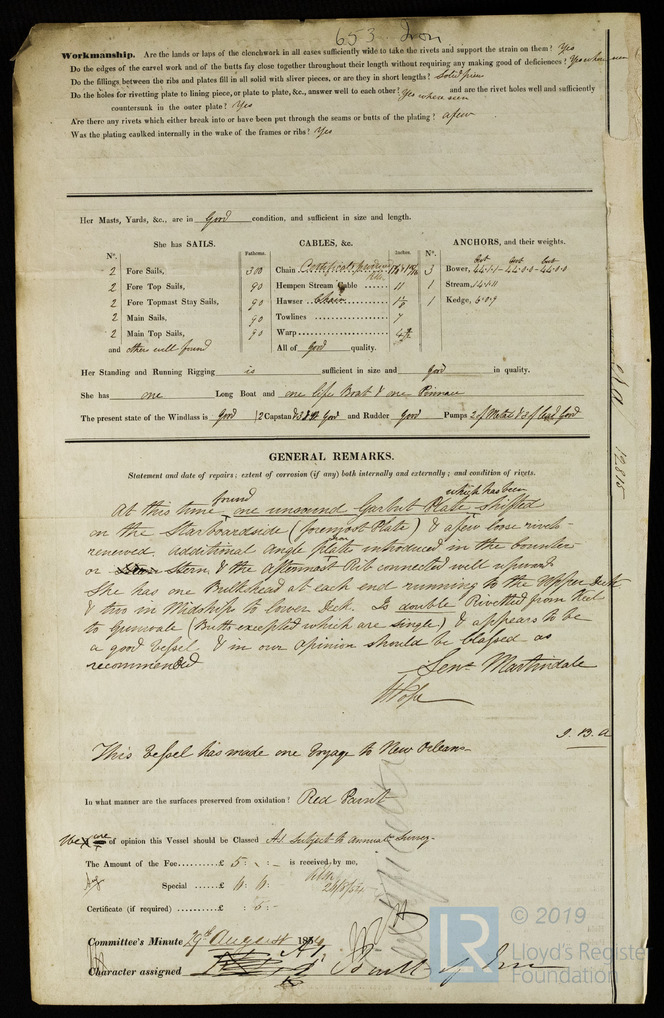 653 Iron
Workmanship. Are the lands or laps of the clenchwork in all cases sufficiently wide to take the rivets and support the strain on them? Yes
Do the edges of the carvel work and of the butts fay close together throughout their length without requiring any making good of deficiences? Yes where seen
Do the fillings between the ribs and plates fill in all solid with sliver pieces, or are they in short lengths? Solid pieces
Do the holes for rivetting plate to lining piece, or plate to plate, &c., answer well to each other? Yes where seen and are the rivet holes well and sufficiently
countersunk in the outer plate? Yes
Are there any rivets which either break into or have been put through the seams or butts of the plating? a few
Was the plating caulked internally in the wake of the frames or ribs? Yes
Her Masts, Yards, &c., are in Good condition, and sufficient in size and length.
She has SAILS.
Nº.
2 Fore Sails,
2 Fore Top Sails,
2 Fore Topmast Stay Sails,
2 Main Sails,
2 Main Top Sails,
and others well found
CABLES, &c.
Fathoms. Inches.
300 Chain Certificate produced
90 Hempen Stream Cable 11
90 Hawser Chain
90 Towlines 7
90 Warp
All of Good quality.
ANCHORS, and their weights.
Nº.
3 Bower, 44-1-1 - 44-0-0 - 44-0-0
1 Stream, 14-1-11
1 Kedge, 6-0-9
Her Standing and Running Rigging is sufficient in size and good in quality.
She has one Long Boat and one life Boat & one Pinnace
The present state of the Windlass is Good 2 Capstan Good and Rudder Good Pumps 2 of Metal & 3 of lead Good
GENERAL REMARKS.
Statement and date of repairs; extent of corrosion (if any) both internally and externally; and condition of rivets.
At this time found one unsound Garbut Plate which has been shifted
on the Starboardside (foremost Plate) & a few loose rivets
renewed additional angle plate introduced in the Counter
or Stern, & the aftermost Rib connected well upward
She has one Bulkhead at each end running to the Upper Deck
& two in Midships to lower Deck. Is double Rivetted from Keel
to Gunwale (Butts excepted which are single) & appears to be
a good Vessel & in our opinion should be Classed as
recommended
Senr. Martindale
J. B. A
This Vessel has made one Voyage to New Orleans
In what manner are the surfaces preserved from oxidation? Red Paint
We are of opinion this Vessel should be Classed A1 subject to annual Survey
The Amount of the Fee.......... £ 5 : - : - is received by me,
Special ...... £ 6 : 6 : -
Certificate (if required) .......... £ : 5 : -
Committee's Minute 29th August 1854
Character assigned A1
Built of Iron
© 2019
LR
Lloyd's Register
Foundation